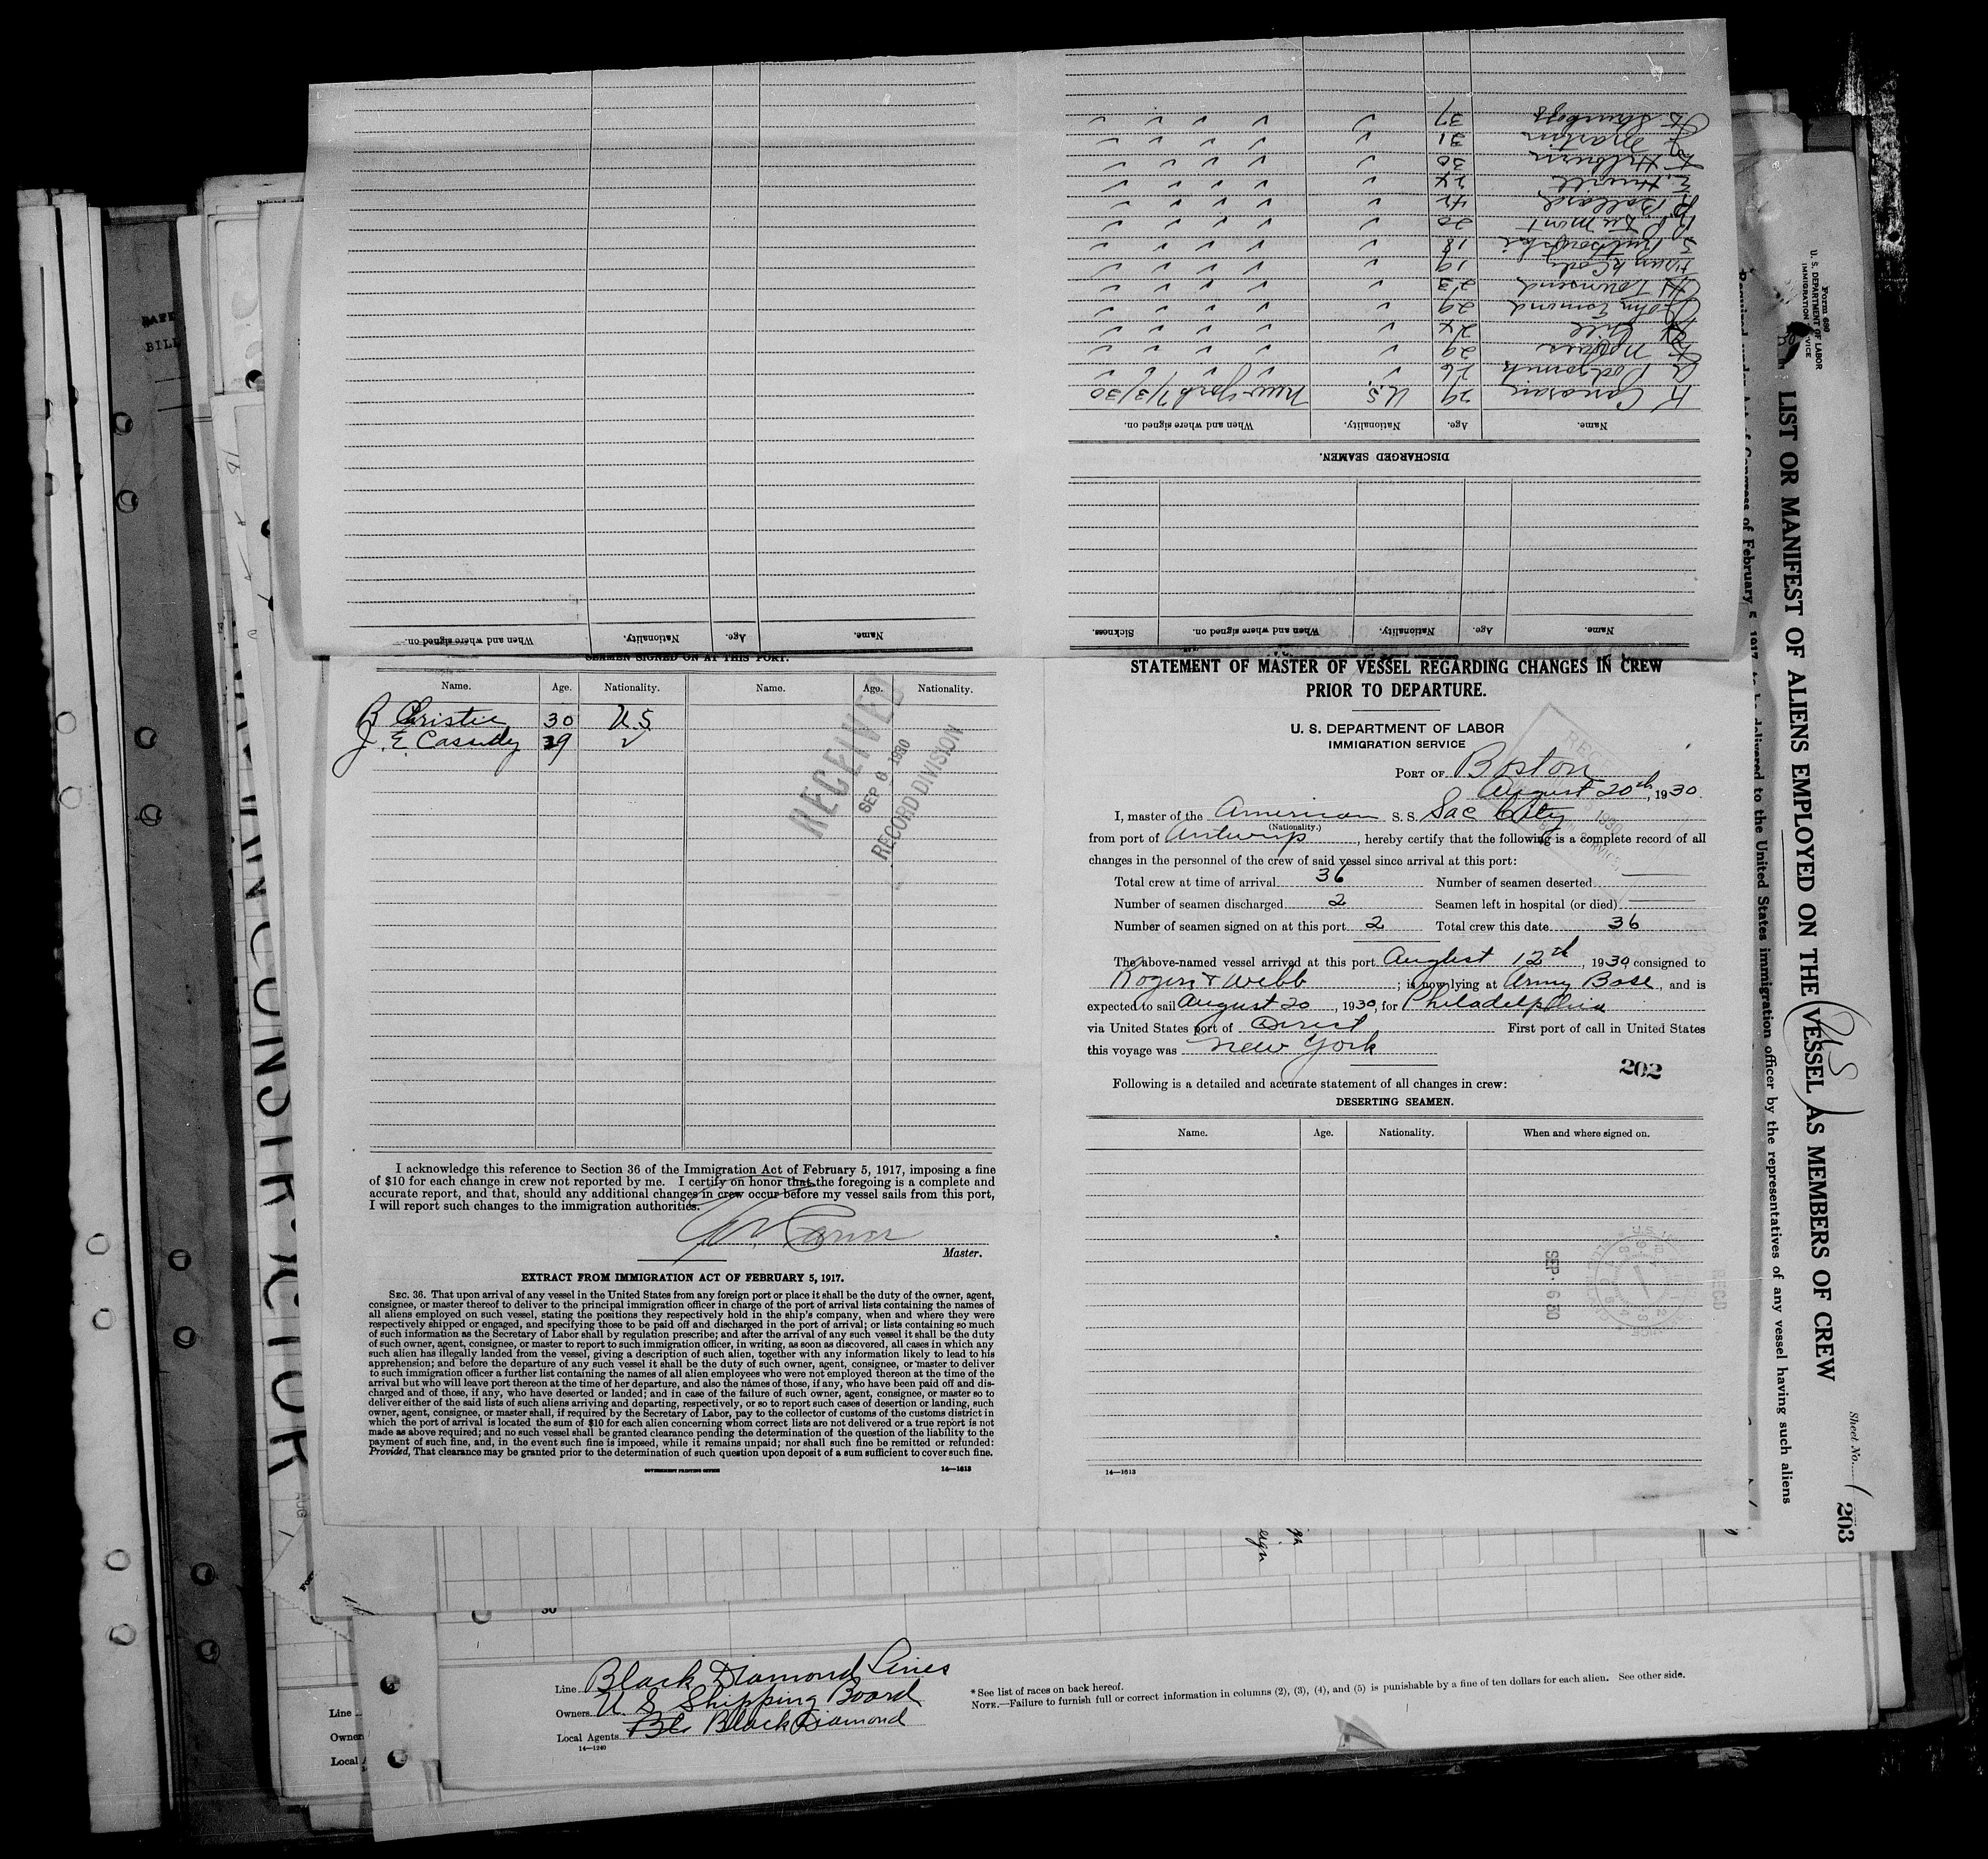 Name. Age. Nationality. When and where signed on.
Name. Age. Nationality. When and where signed on. Sickness.
DISCHARGED SEAMEN.
Name. Age. Nationality. When and where signed on.
29 U.S. New York 7/3/30
26 ✓ ✓ ✓ ✓ ✓
29 ✓ ✓ ✓ ✓ ✓
Gill 24 ✓ ✓ ✓ ✓ ✓
John 29 ✓ ✓ ✓ ✓ ✓
Townsend 23 ✓ ✓ ✓ ✓ ✓
19 ✓ ✓ ✓ ✓ ✓
18 ✓ ✓ ✓ ✓ ✓
20 ✓ ✓ ✓ ✓ ✓
R. Ballard 42 ✓ ✓ ✓ ✓ ✓
24 ✓ ✓ ✓ ✓ ✓
30 ✓ ✓ ✓ ✓ ✓
Martin 31 ✓ ✓ ✓ ✓ ✓
37 ✓ ✓ ✓ ✓ ✓
SEAMEN SIGNED ON AT THIS PORT.
Name. Age. Nationality. Name. Age. Nationality.
Christie 30 U.S.
J. E. Cassidy 39 ✓
RECEIVED
SEP 9 1930
RECORD DIVISION
I acknowledge this reference to Section 36 of the Immigration Act of February 5, 1917, imposing a fine
of $10 for each change in crew not reported by me. I certify on honor that the foregoing is a complete and
accurate report, and that, should any additional changes in crew occur before my vessel sails from this port,
I will report such changes to the immigration authorities.
Master.
EXTRACT FROM IMMIGRATION ACT OF FEBRUARY 5, 1917.
SEC. 36. That upon arrival of any vessel in the United States from any foreign port or place it shall be the duty of the owner, agent,
consignee, or master thereof to deliver to the principal immigration officer in charge of the port of arrival lists containing the names of
all aliens employed on such vessel, stating the positions they respectively hold in the ship's company, when and where they were
respectively shipped or engaged, and specifying those to be paid off and discharged in the port of arrival; or lists containing so much
of such information as the Secretary of Labor shall by regulation prescribe; and after the arrival of any such vessel it shall be the duty
of such owner, agent, consignee, or master to report to such immigration officer, in writing, as soon as discovered, all cases in which any
such alien has illegally landed from the vessel, giving a description of such alien, together with any information likely to lead to his
apprehension; and before the departure of any such vessel it shall be the duty of such owner, agent, consignee, or master to deliver
to such immigration officer a further list containing the names of all alien employees who were not employed thereon at the time of the
arrival but who will leave port thereon at the time of her departure, and also the names of those, if any, who have been paid off and dis-
charged and of those, if any, who have deserted or landed; and in case of the failure of such owner, agent, consignee, or master so to
deliver either of the said lists of such aliens arriving and departing, respectively, or so to report such cases of desertion or landing, such
owner, agent, consignee, or master shall, if required by the Secretary of Labor, pay to the collector of customs of the customs district in
which the port of arrival is located the sum of $10 for each alien concerning whom correct lists are not delivered or a true report is not
made as above required; and no such vessel shall be granted clearance pending the determination of the question of the liability to the
payment of such fine, and, in the event such fine is imposed, while it remains unpaid; nor shall such fine be remitted or refunded:
Provided, That clearance may be granted prior to the determination of such question upon deposit of a sum sufficient to cover such fine.
GOVERNMENT PRINTING OFFICE 14—1613
STATEMENT OF MASTER OF VESSEL REGARDING CHANGES IN CREW
PRIOR TO DEPARTURE.
U. S. DEPARTMENT OF LABOR
IMMIGRATION SERVICE
PORT OF Boston
August 20th, 1930.
I, master of the American S. S. Sac City
(Nationality.)
from port of Antwerp, hereby certify that the following is a complete record of all
changes in the personnel of the crew of said vessel since arrival at this port:
Total crew at time of arrival 36 Number of seamen deserted —
Number of seamen discharged 2 Seamen left in hospital (or died) —
Number of seamen signed on at this port 2 Total crew this date 36
The above-named vessel arrived at this port Auglist 12th, 1930 consigned to
Rogers & Webb; is now lying at Army Base, and is
expected to sail August 20, 1930, for Philadelphia
via United States port of Direct First port of call in United States
this voyage was New York
202
Following is a detailed and accurate statement of all changes in crew:
DESERTING SEAMEN.
Name. Age. Nationality. When and where signed on.
SEP. 6 30
REC'D
14—1613
Form 680
U. S. DEPARTMENT OF LABOR
IMMIGRATION SERVICE
LIST OR MANIFEST OF ALIENS EMPLOYED ON THE VESSEL AS MEMBERS OF CREW
US
Required under Act of Congress of February 5, 1917, to be delivered to the United States immigration officer by the representatives of any vessel having such aliens
Sheet No. 1
203
eign
Line Black Diamond Lines
Owners U. S. Shipping Board
Local Agents Black Diamond
14—1240
* See list of races on back hereof.
NOTE.—Failure to furnish full or correct information in columns (2), (3), (4), and (5) is punishable by a fine of ten dollars for each alien. See other side.
Line
Owner
Local
BILL
AUG
30